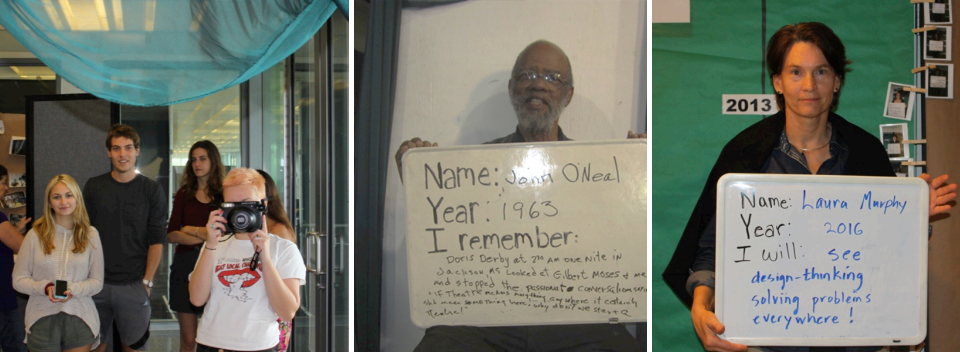 EAT LOCAL
Name: John O'Neal
Year: 1963
I remember:
Doris Derby at 2:00 AM one Nite in
Jackson, MS Looked at Gilbert Moses & me
and stopped the passionate conversation
"If Theatre means anything anywhere it certainly
should mean something here; why don't we start a
theatre!"
2013
Name: Laura Murphy
Year: 2016
I will: see
design-thinking
solving problems
everywhere!